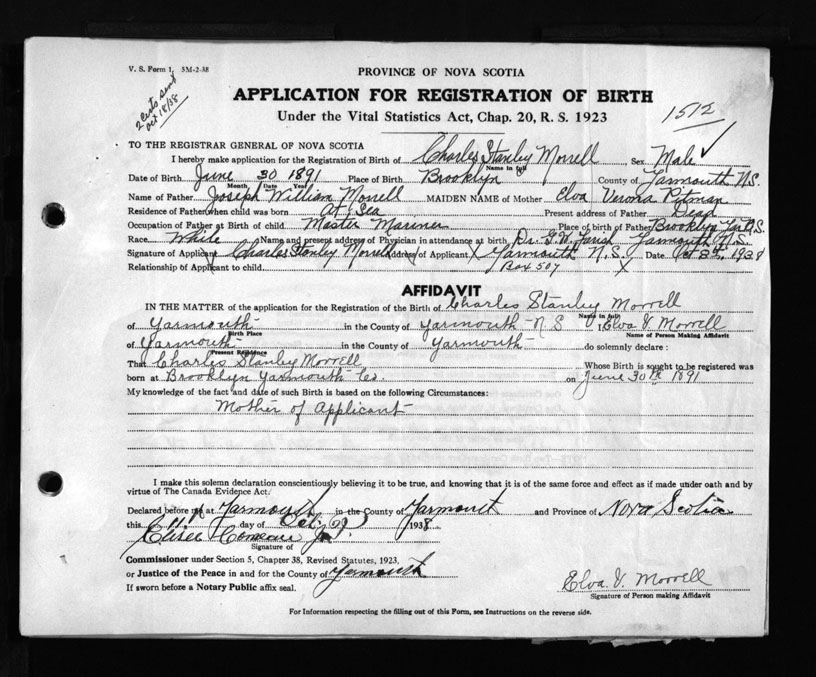 V. S. Form 1. 3M-2-38
2 certs sent
Oct 18/38
PROVINCE OF NOVA SCOTIA
APPLICATION FOR REGISTRATION OF BIRTH
Under the Vital Statistics Act, Chap. 20, R. S. 1923
1512
TO THE REGISTRAR GENERAL OF NOVA SCOTIA
I hereby make application for the Registration of Birth of Charles Stanley Morrell Sex Male
Name in full
Date of Birth June 30 1891 Place of Birth Brooklyn County of Yarmouth N.S.
Month Date Year
Name of Father Joseph William Morrell MAIDEN NAME of Mother Elva Verona Pitman
Residence of Father when child was born At Sea Present address of Father Dead
Occupation of Father at Birth of child Master Mariner Place of birth of Father Brooklyn Yar N.S.
Race White Name and present address of Physician in attendance at birth Dr. G.W. Farish Yarmouth N.S.
Signature of Applicant Charles Stanley Morrell Address of Applicant Yarmouth N.S. Date Oct 8th, 1938
Relationship of Applicant to child Box 507
AFFIDAVIT
IN THE MATTER of the application for the Registration of the Birth of Charles Stanley Morrell
Name in full
of Yarmouth in the County of Yarmouth N S I, Elva V. Morrell
Birth Place Name of Person Making Affidavit
of Yarmouth in the County of Yarmouth do solemnly declare:
Present Residence
That Charles Stanley Morrell Whose Birth is sought to be registered was
born at Brooklyn Yarmouth Co. on June 30th 1891
My knowledge of the fact and date of such Birth is based on the following Circumstances:
Mother of Applicant
I make this solemn declaration conscientiously believing it to be true, and knowing that it is of the same force and effect as if made under oath and by
virtue of The Canada Evidence Act.
Declared before me at Yarmouth in the County of Yarmouth and Province of Nova Scotia
this 11 day of Oct. 1938
Elisee Comeau Jr.
Signature of
Commissioner under Section 5, Chapter 38, Revised Statutes, 1923,
or Justice of the Peace in and for the County of Yarmouth
If sworn before a Notary Public affix seal.
Elva V. Morrell
Signature of Person making Affidavit
For Information respecting the filling out of this Form, see Instructions on the reverse side.